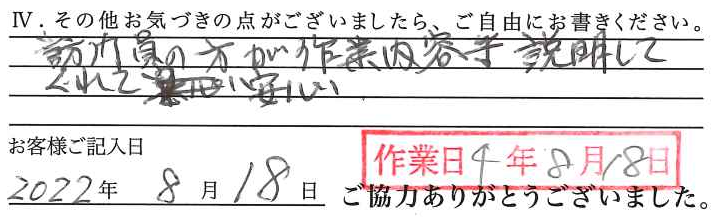 Ⅳ．その他お気づきの点がございましたら、ご自由にお書きください。
訪問員の方が作業内容を説明して
くれて 安心い
お客様ご記入日
作業日 4年8月18日
2022年 8月18日
ご協力ありがとうございました。